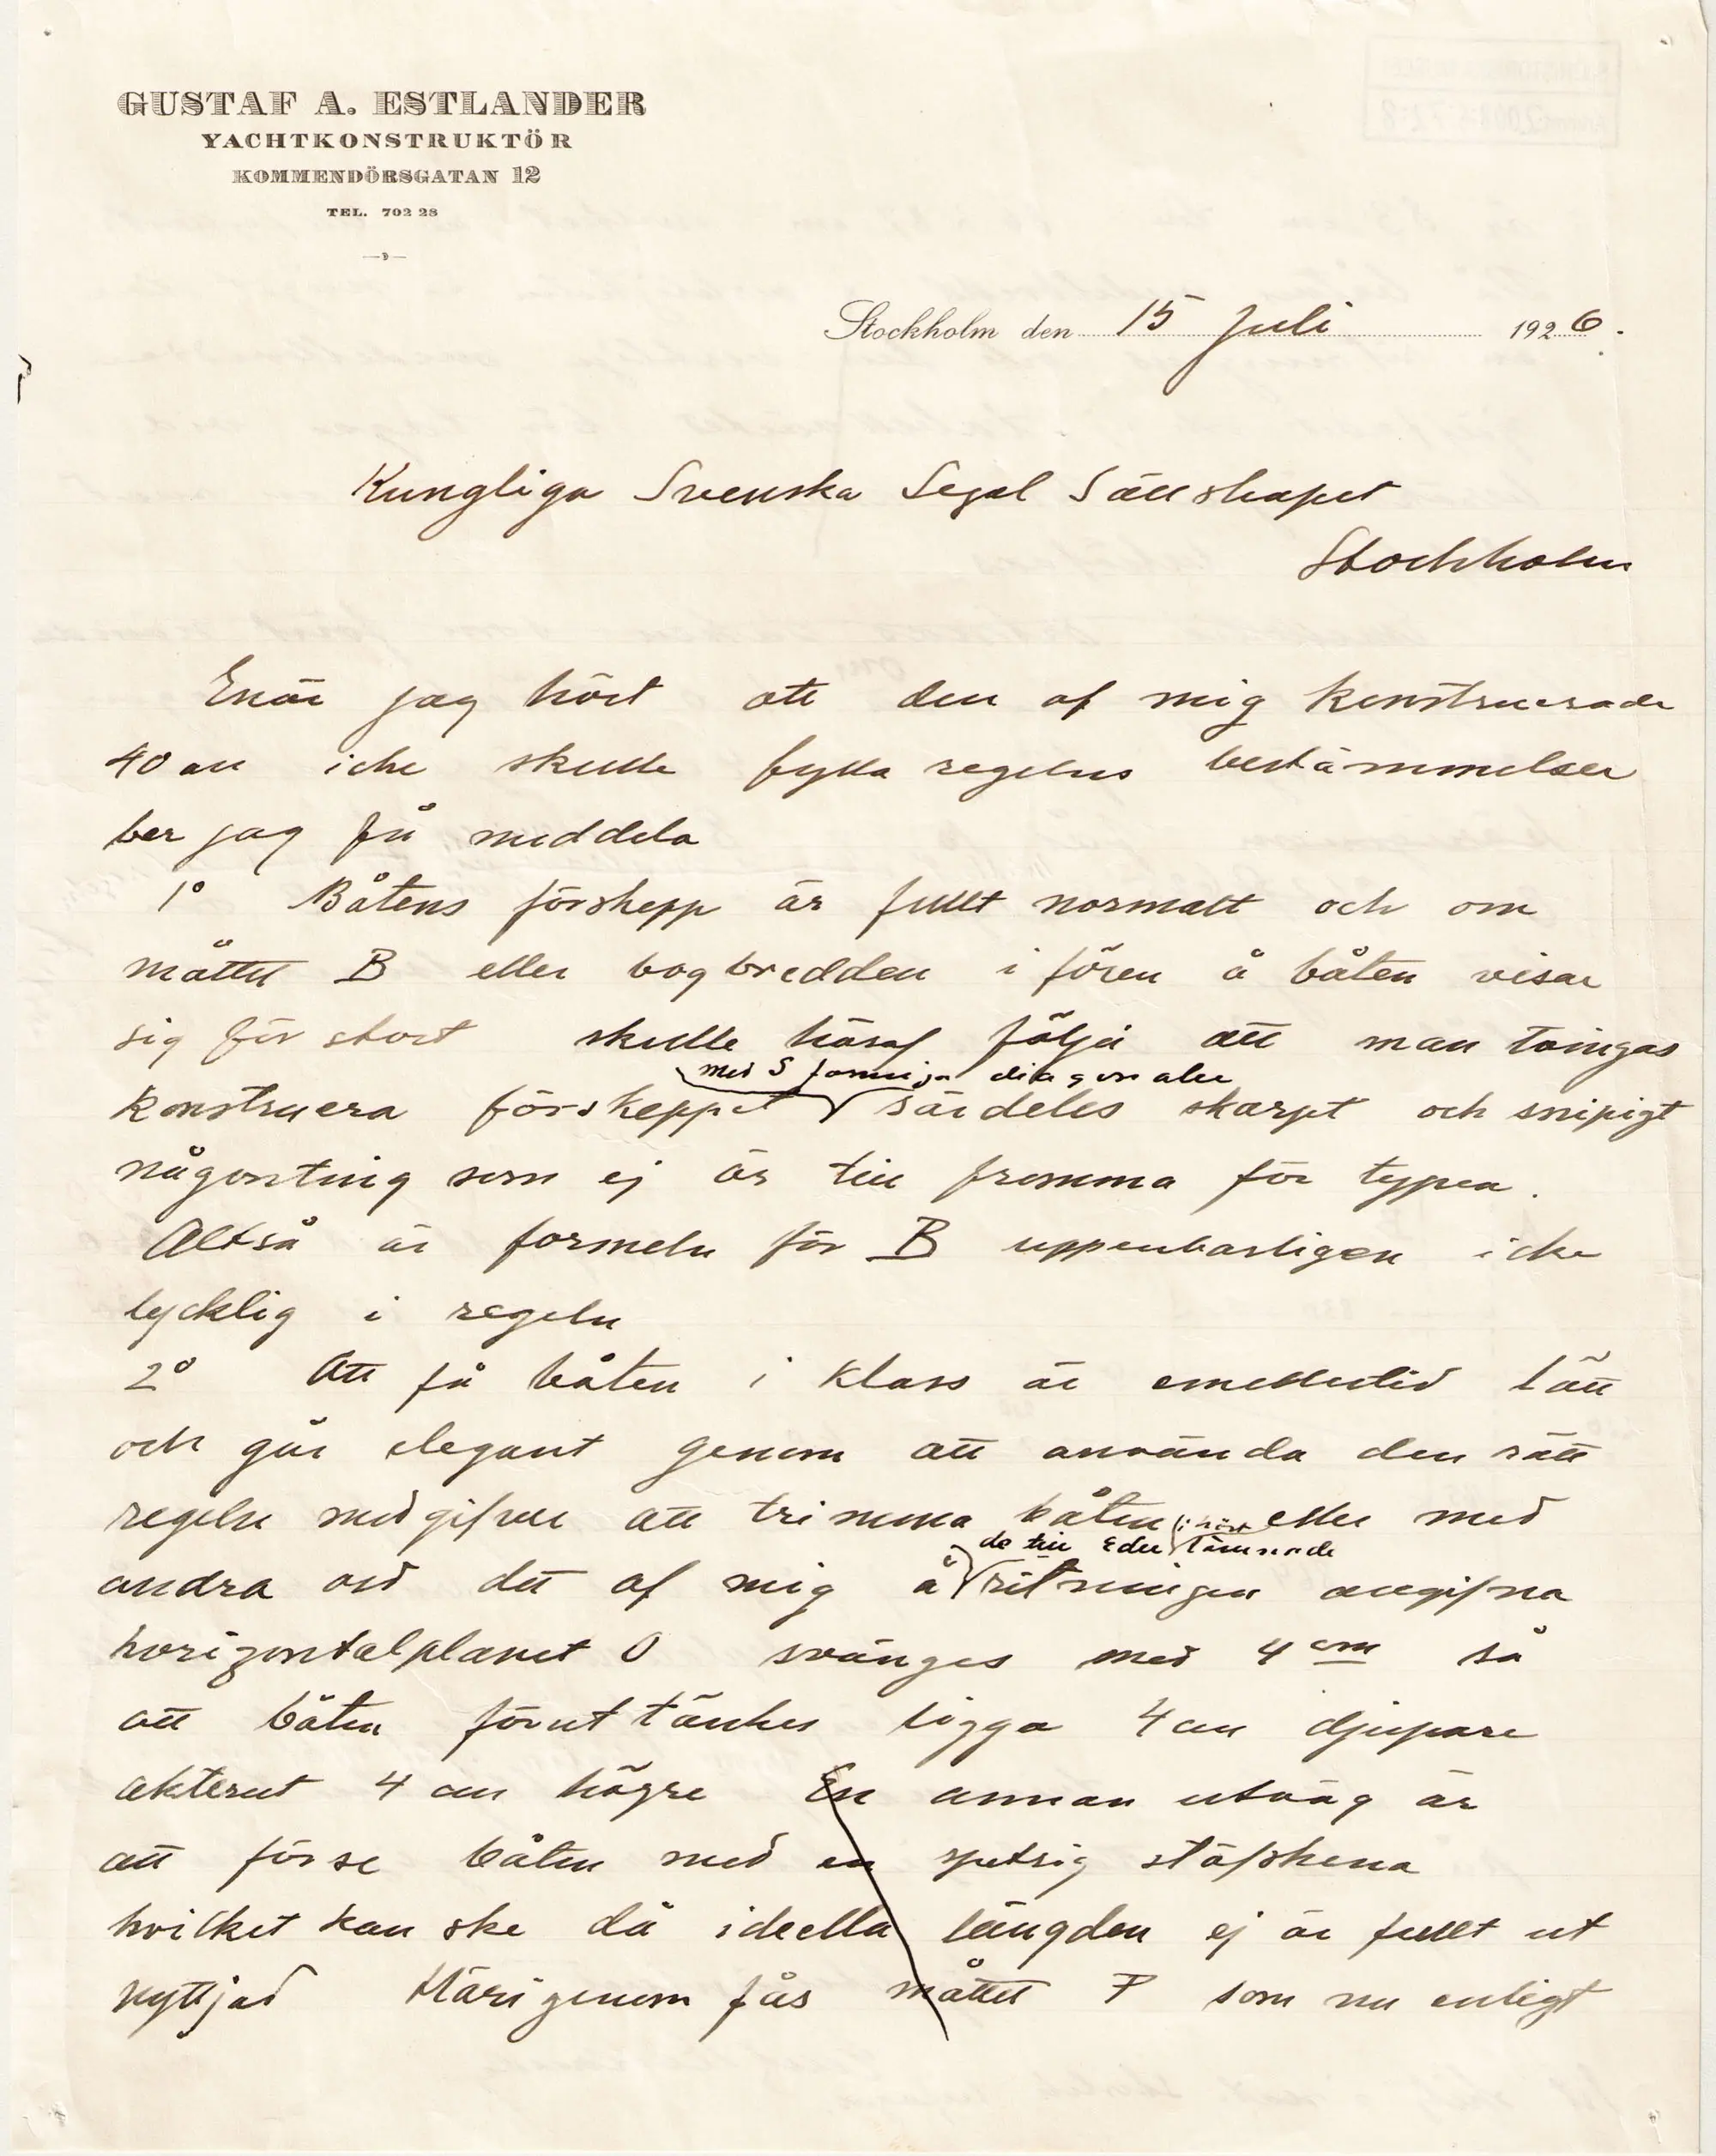 GUSTAF A. ESTLANDER
YACHTKONSTRUKTÖR
KOMMENDÖRSGATAN 12
TEL. 702 28
Stockholm den 15 Juli 1926.
Kungliga Svenska Segel Sällskapet
Stockholm
Enär jag hört att den af mig konstruerade
40 an icke skulle fylla regelns bestämmelser
ber jag få meddela
1º Båtens förskepp är fullt normalt och om
måttet B eller bogbredden i fören å båten visar
sig för stort skulle häraf följa att man tvingas
med S formiga diagonaler
konstruera förskeppet särdeles skarpt och snipigt
någonting som ej är till fromma för typen.
Altså är formeln för B uppenbarligen icke
lycklig i regeln
2º Att få båten i klass är emellertid lätt
och går elegant genom att använda den rätt
regeln medgifver att trimma båten eller med
de till Eder lämnade
andra ord det af mig å ritningen angifna
horizontalplanet 0 svänges med 4 cm så
att båten förut tänkes ligga 4 cm djupare
akterut 4 cm högre En annan utväg är
att förse båten med en spetsig stäfskena
hvilket kan ske då ideella längden ej är fullt ut
nyttjad Härigenom fås måttet P som nu enligt